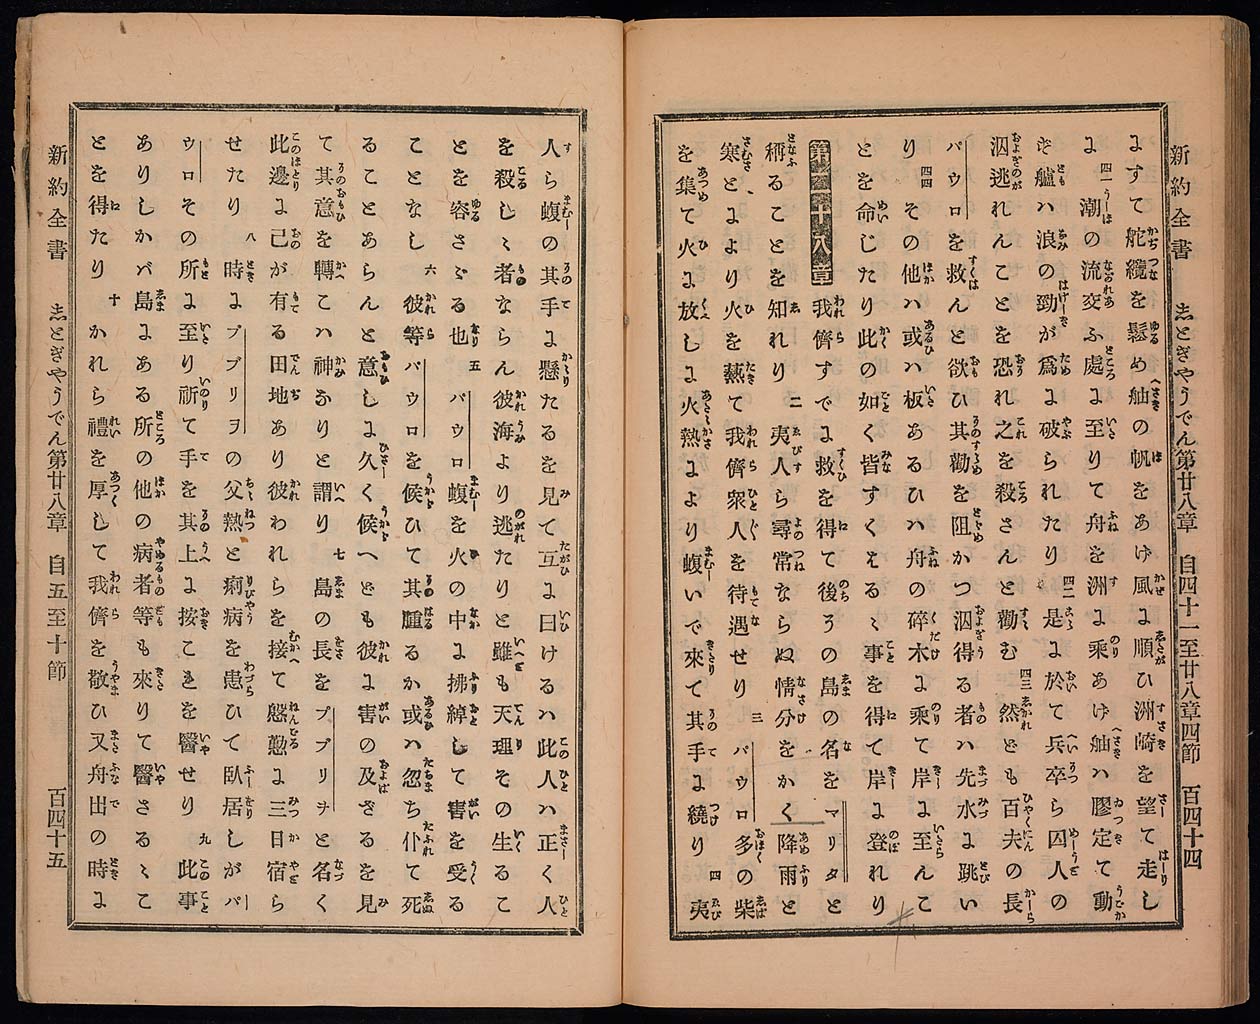 新約全書　志とぎやうでん第廿八章　自四十一至廿八章四節　百四十四
にすて舵纜を鬆め舳の帆をあげ風に順ひ洲崎を望て走し
に 四一 潮の流交ふ處に至りて舟を洲に乘あげ舳ハ膠定て動
ぞ艫ハ浪の勁が爲に破られたり 四二 是に於て兵卒ら囚人の
泅逃れんことを恐れ之を殺さんと勸む 四三 然ども百夫の長
パウロを救んと欲ひ其勸を阻かつ泅得る者ハ先水に跳い
り 四四 その他ハ或ハ板あるひハ舟の碎木に乘て岸に至んこ
とを命じたり此の如く皆すくはるヽ事を得て岸に登れり
第二十八章 我儕すでに救を得て後ろの島の名をマリタと
稱ることを知れり 二 夷人ら尋常ならぬ情分をかく降雨と
寒とにより火を爇て我儕衆人を待遇せり 三 パウロ多の柴
を集て火に放しに火熱により蝮いで來て其手に繞り 四 夷
新約全書　志とぎやうでん第廿八章　自五至十節　百四十五
人ら蝮の其手に懸たるを見て互に曰けるハ此人ハ正く人
を殺しヽ者ならん彼海より逃たりと雖も天理その生るこ
とを容さゞる也 五 パウロ蝮を火の中に拂綽して害を受る
ことなし 六 彼等パウロを候ひて其腫るか或ハ忽ち仆て死
ることあらんと意しに久く候へども彼に害の及ざるを見
て其意を轉こハ神なりと謂り 七 島の長をプブリヲと名く
此邊に己が有る田地あり彼われらを接て慇懃に三日宿ら
せたり 八 時にプブリヲの父熱と痢病を患ひて臥居しがパ
ウロその所に至り祈て手を其上に按これを醫せり 九 此事
ありしかバ島にある所の他の病者等も來りて醫さるヽこ
とを得たり 十 かれら禮を厚して我儕を敬ひ又舟出の時に